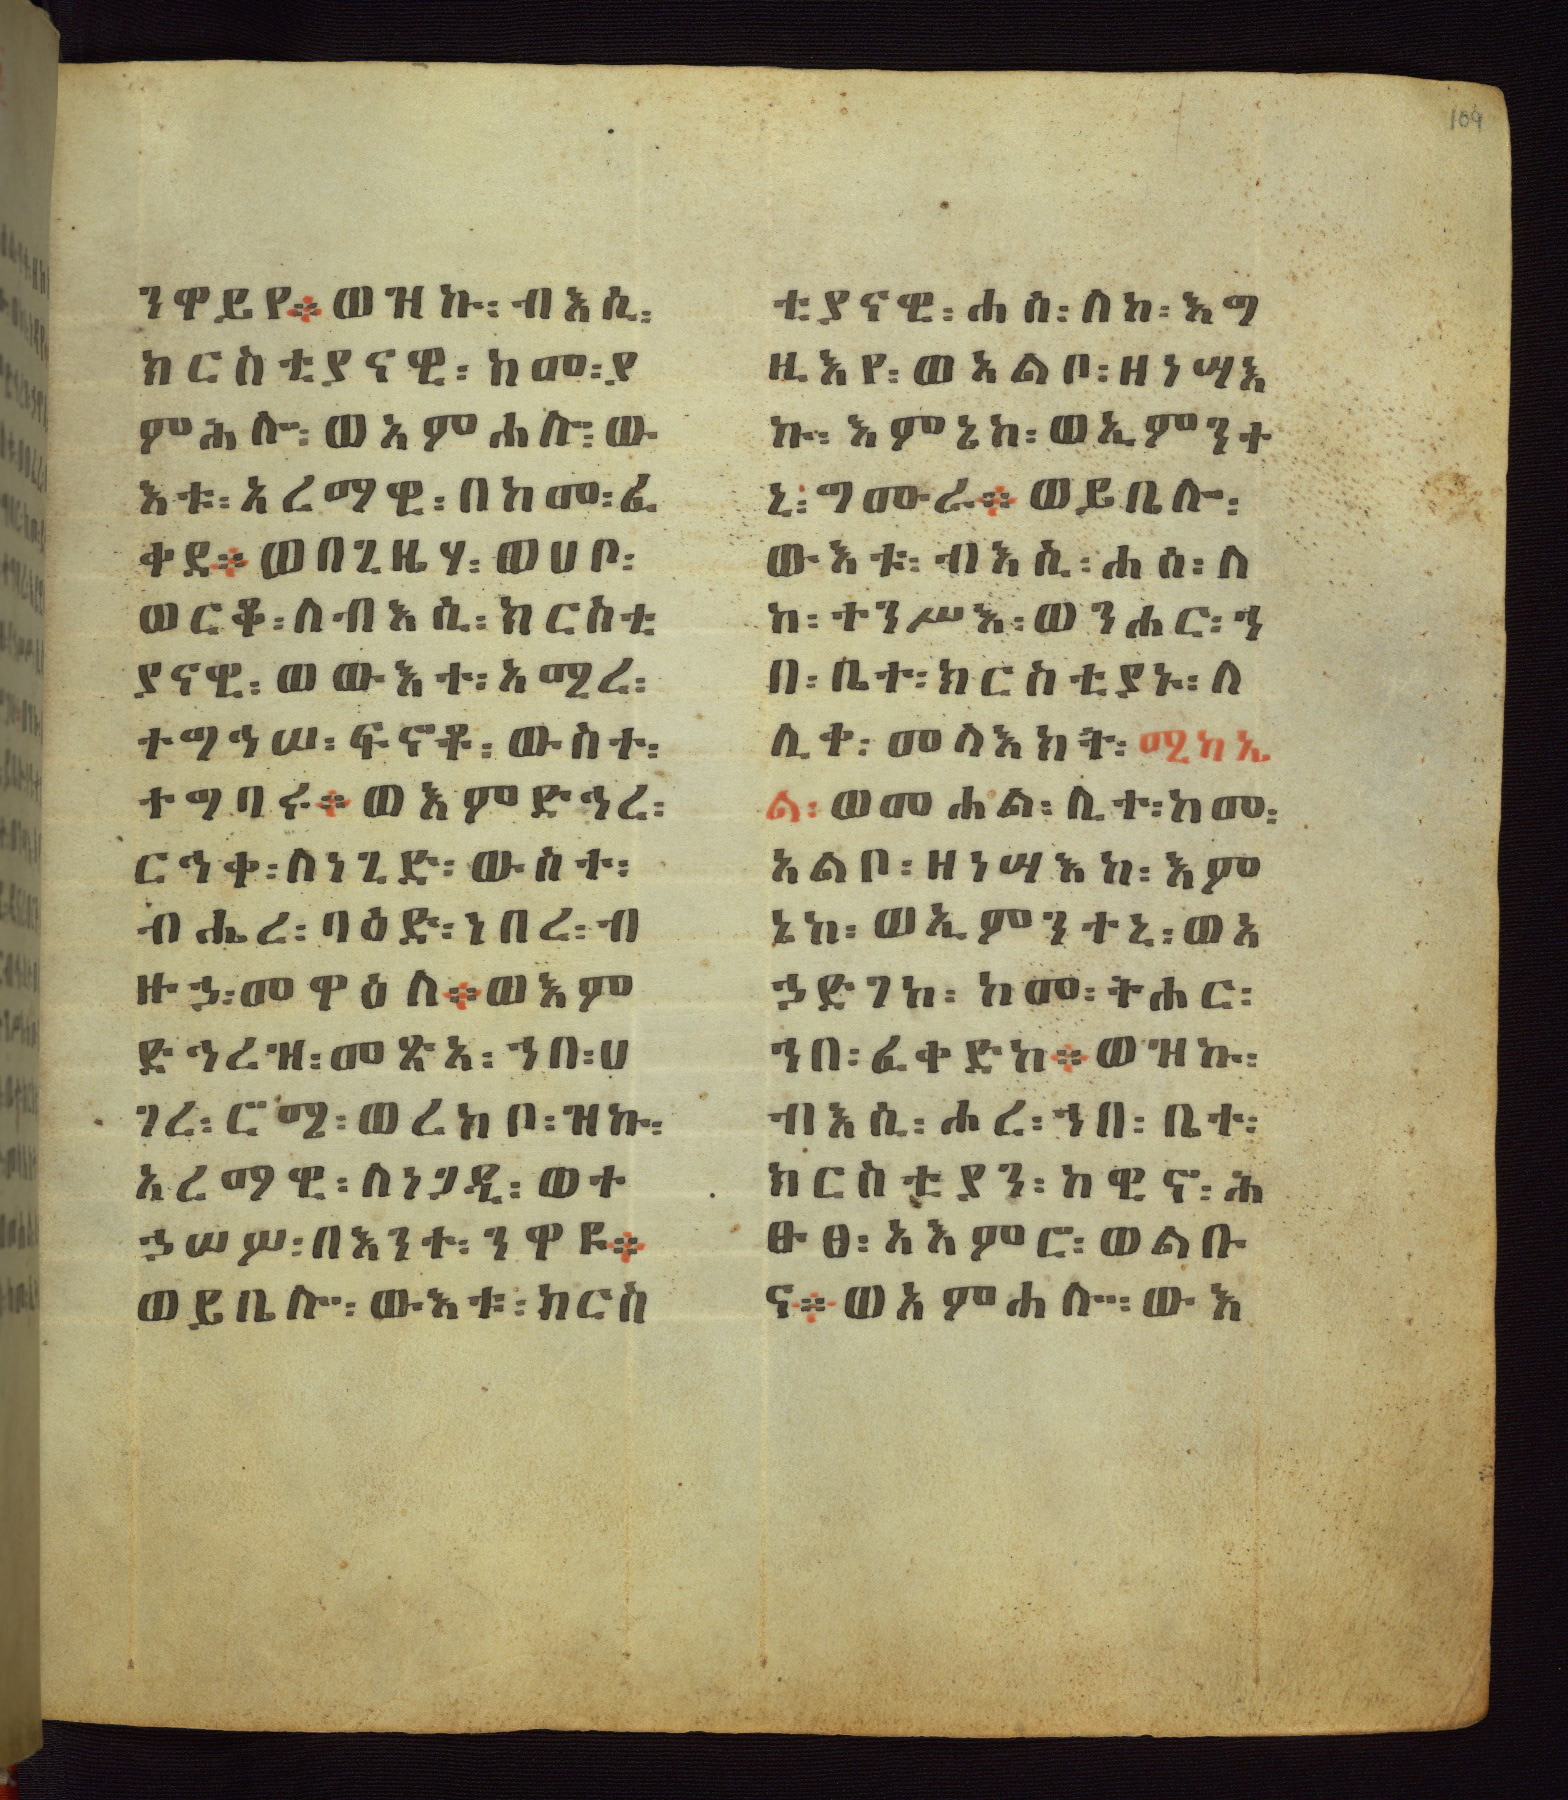 109
ንዋይየ፨ወዝኩ፡ብእሲ፡
ክርስቲያናዊ፡ከመ፡ያ
ምሕሎ፡ወአምሐሎ፡ው
እቱ፡አረማዊ፡በከመ፡ፈ
ቀደ፨ወበጊዜሃ፡ወሀቦ፡
ወርቆ፡ለብእሲ፡ክርስቲ
ያናዊ፡ወውእተ፡አሚረ፡
ተማኅሠ፡ፍኖቶ፡ውስተ፡
ተግባሩ፨ወእምድኅረ፡
ርኅቀ፡ለነጊድ፡ውስተ፡
ብሔረ፡ባዕድ፡ነበረ፡ብ
ዙኃ፡መዋዕለ፨ወእም
ድኅረዝ፡መጽአ፡ኀበ፡ሀ
ገረ፡ሮሜ፡ወረከቦ፡ዝኩ፡
አረማዊ፡ለነጋዲ፡ወተ
ኃሠሦ፡በእንተ፡ንዋዩ፨
ወይቤሎ፡ውእቱ፡ክርስ
ቲያናዊ፡ሐሰ፡ለከ፡እግ
ዚእየ፡ወአልቦ፡ዘነሣእ
ኩ፡እምኔከ፡ወኢምንተ
ኒ፡ግሙራ፨ወይቤሎ፡
ውእቱ፡ብእሲ፡ሐሰ፡ለ
ከ፡ተንሥእ፡ወንሐር፡ኀ
በ፡ቤተ፡ክርስቲያኑ፡ለ
ሊቀ፡መላእክት፡ሚካኤ
ል፡ወመሐል፡ሊተ፡ከመ፡
አልቦ፡ዘነሣእከ፡እም
ኔከ፡ወኢምንተኒ፡ወአ
ኃድገከ፡ከመ፡ትሐር፡
ኀበ፡ፈቀድከ፨ወዝኩ፡
ብእሲ፡ሐረ፡ኀበ፡ቤተ፡
ክርስቲያን፡ከዊኖ፡ሕ
ፁፀ፡አእምሮ፡ወልቡ
ና፨ወአምሐሎ፡ውእ